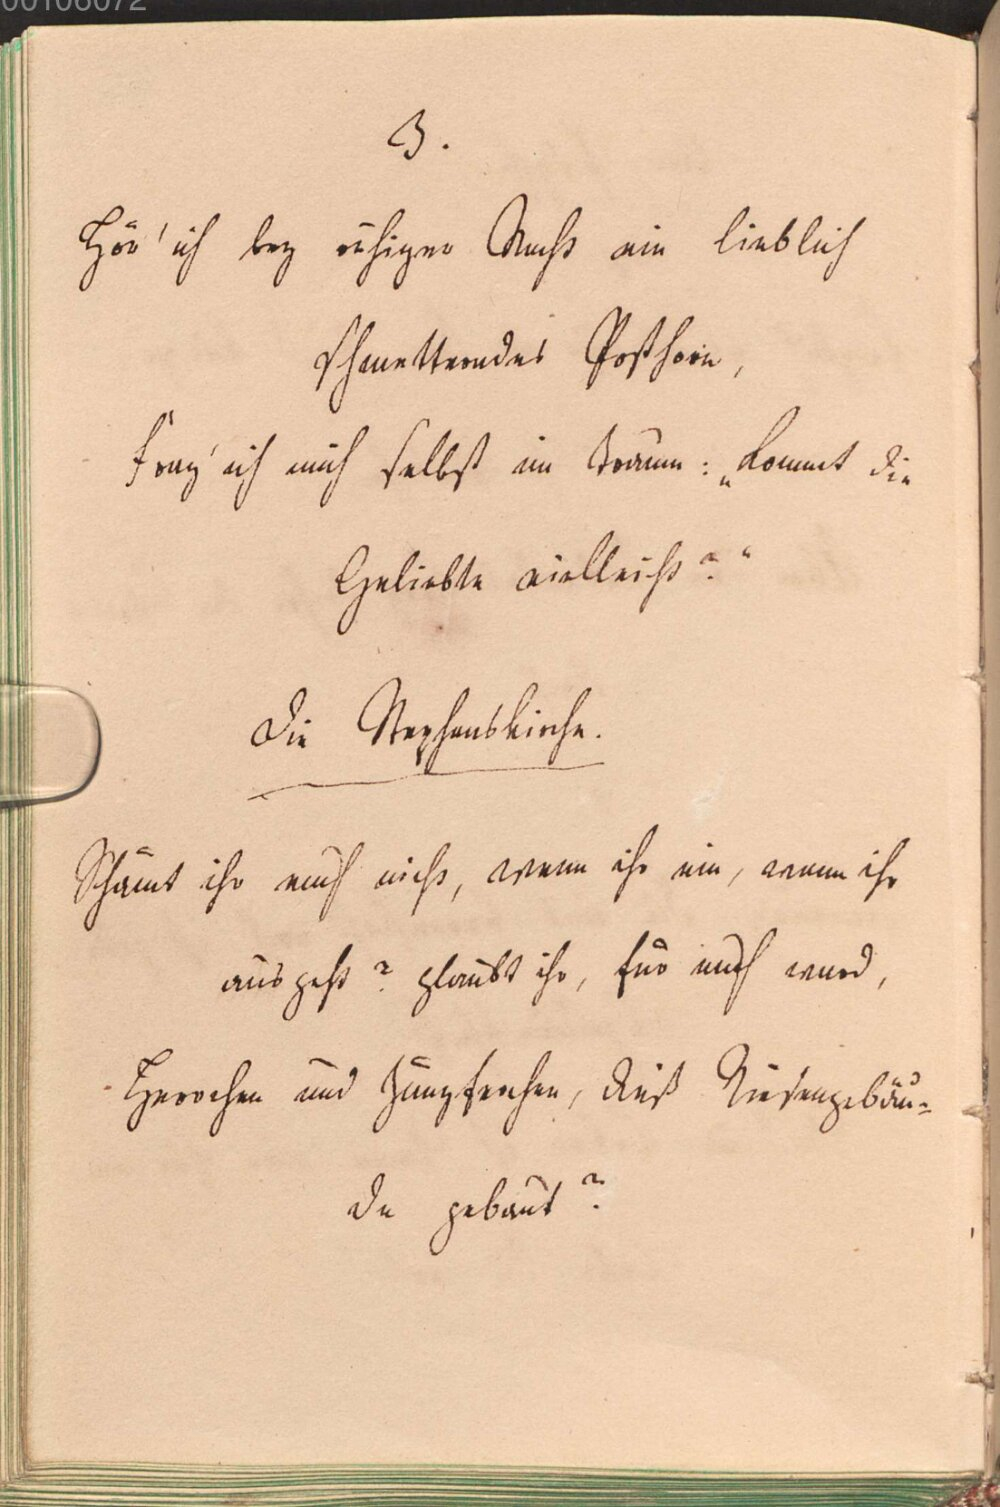 00106072
3.
Hör' ich bey ruhiger Nacht ein lieblich
schmetterndes Posthorn,
Frag' ich mich selbst im Traum: „Kommt die
Geliebte vielleicht?“
Die Stephenskirche.
Schämt ihr euch nicht, wenn ihr ein, wenn ihr
aus geht? glaubt ihr, für euch ward,
Herrchen und Jungferchen, dieß Riesengebäu-
de gebaut?